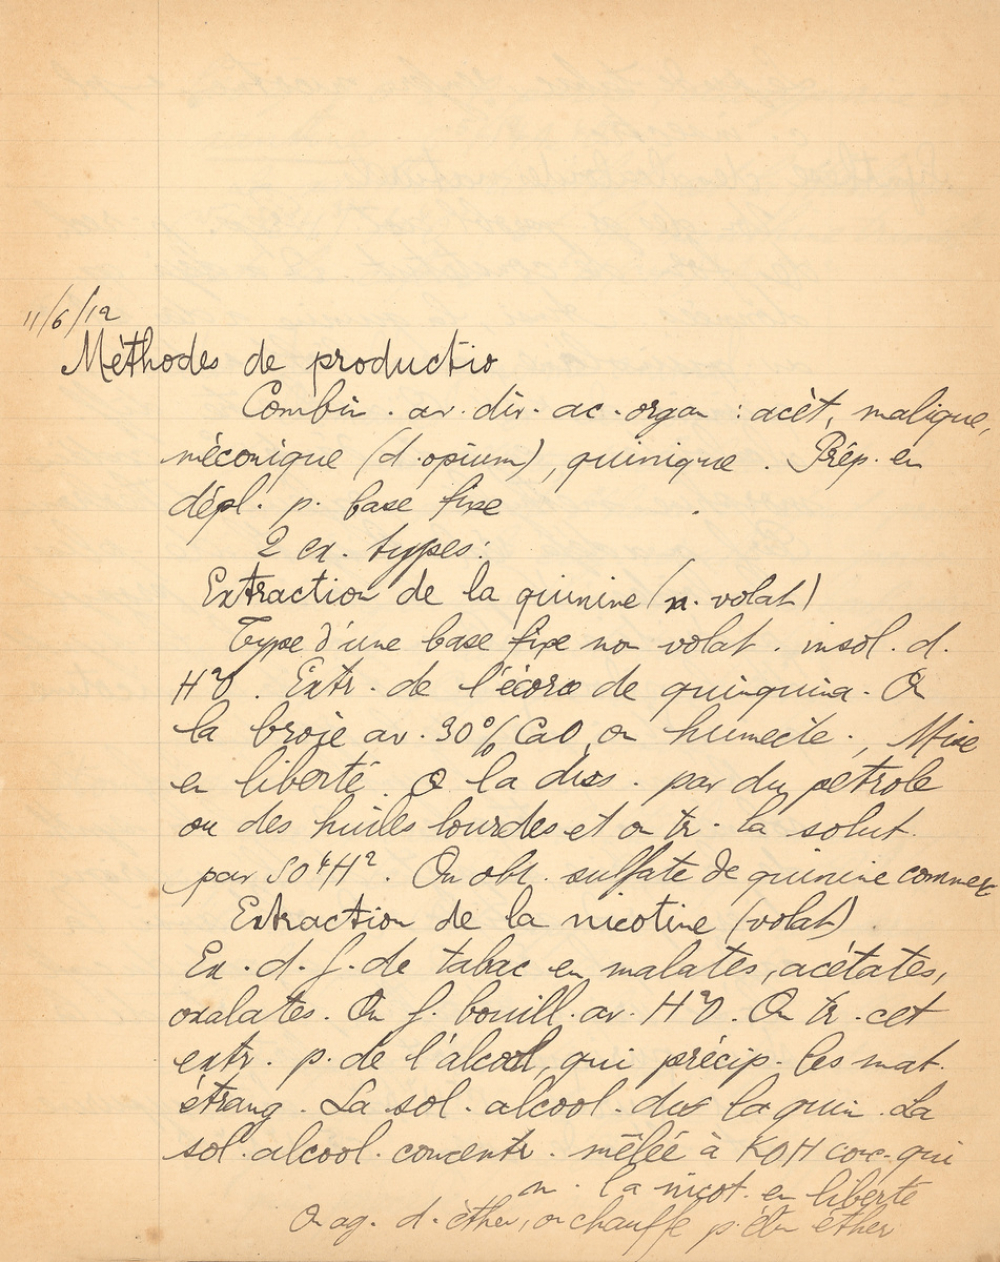 11/6/12
Méthodes de productio
Combin. av. div. ac. organ : acét, malique,
méconique (d. opium), quinique. Prép. en
dépl. p. base fixe
2 ex. types:
Extraction de la quinine (n. volat)
Type d'une base fixe non volat. insol. d.
H²O. Extr. de l'écorce de quinquina. On
la broie av. 30% CaO, on humecte., Mise
en liberté. O la diss. par du pétrole
ou des huiles lourdes et on tr. la solut.
par SO⁴H². On obt. sulfate de quinine commer
Extraction de la nicotine (volat).
Ex. d. f. de tabac en malates, acétates,
oxalates. On f. bouill. av. H²O. On tr. cet
extr. p. de l'alcool, qui précip. les mat.
étrang. La sol. alcool. diss la quin. La
sol. alcool. concentr. mêlée à KOH conc. qui
m. la nicot. en liberté
On ag. d. éther, on chauffe p. éther